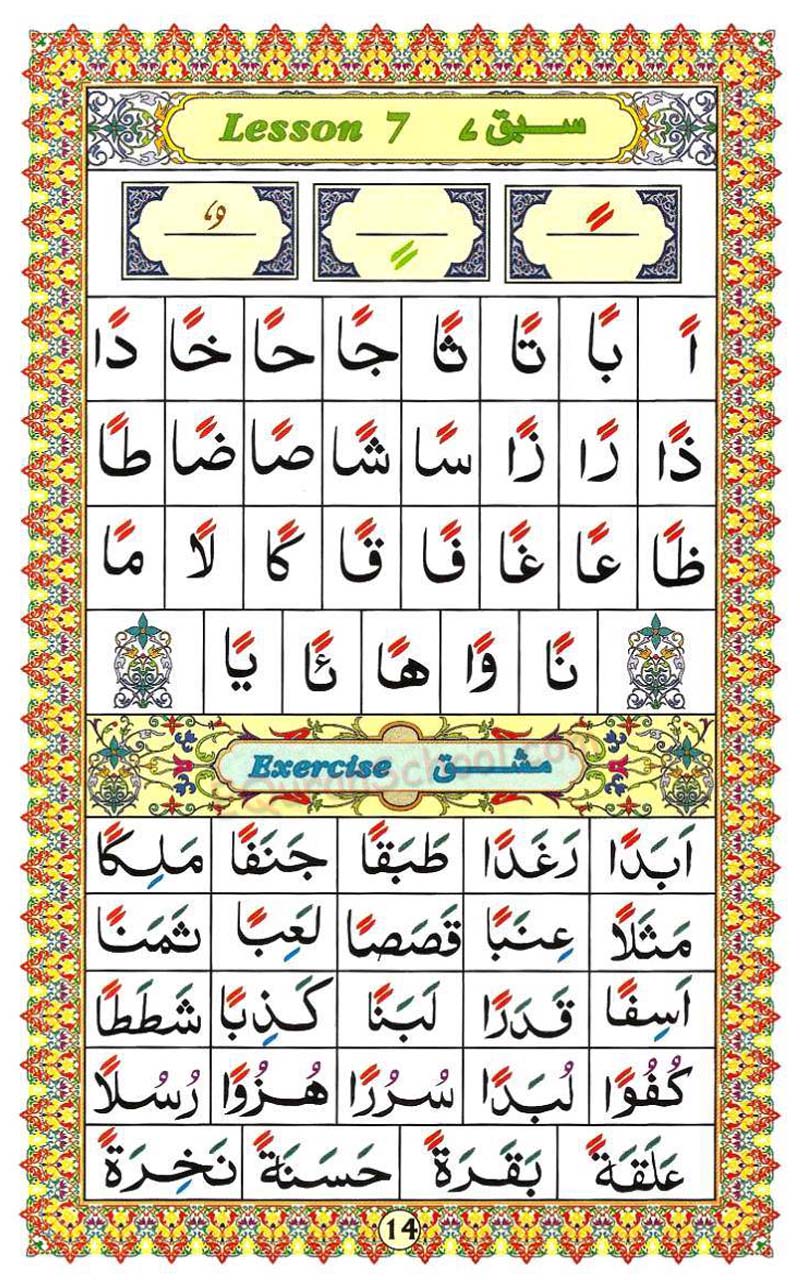 Lesson 7 سبق ۷
ـً ـٍ ـٌ
اً بًا تًا ثًا جًا حًا خًا دًا
ذًا رًا زًا سًا شًا صًا ضًا طًا
ظًا عًا غًا فًا قًا كًا لًا مًا
نًا وًا هًا ئًا يًا
Exercise مشق
eQuranSchool.com
اَبَدًا رَغَدًا طَبَقًا جَنَفًا مَلِكًا
مَثَلًا عِنَبًا قَصَصًا لَعِبًا ثَمَنًا
اَسِفًا قَدَرًا لَبَنًا كَذِبًا شَطَطًا
كُفُوًا لُبَدًا سُرُرًا هُزُوًا رُسُلًا
عَلَقَةً بَقَرَةً حَسَنَةً نَخِرَةً
14